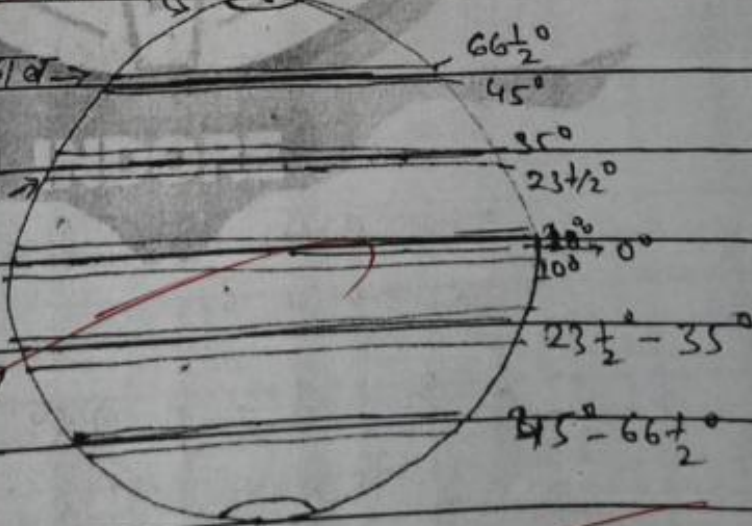 66½°
45°
35°
23½°
10°
→ 0°
10°
23½° - 35°
45° - 66½°